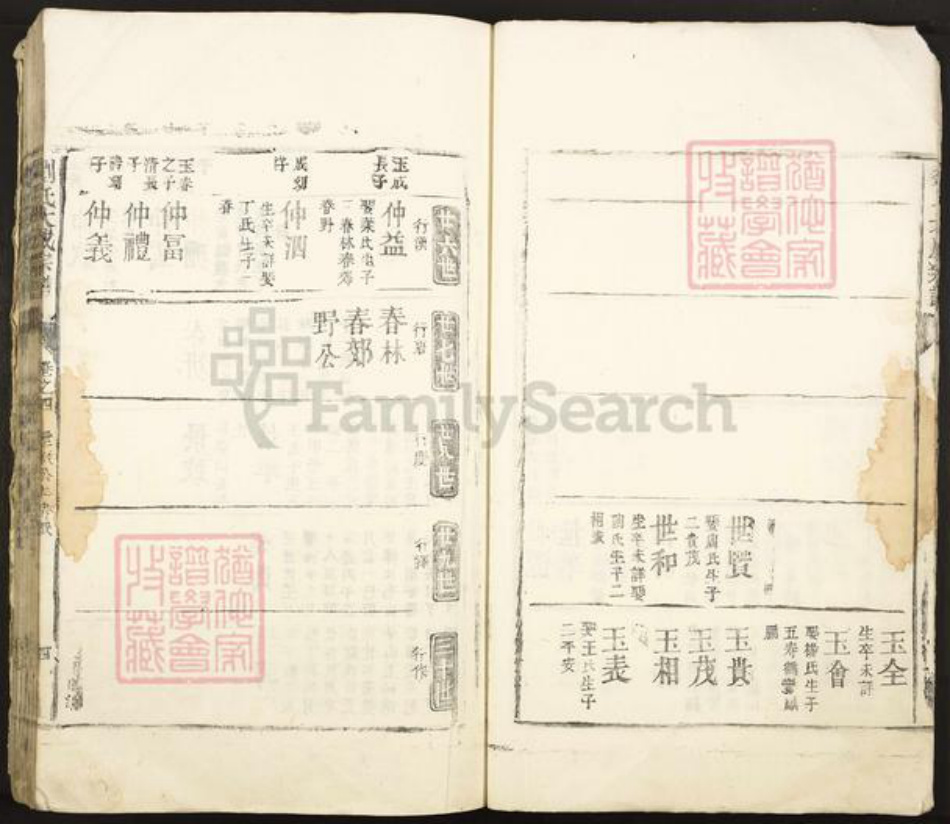 世賢
娶周氏生子
二貴茂
世和
生卒未詳娶
周氏生子二
相表
玉全
生卒未詳
玉會
娶楊氏生子
玉貴
玉茂
玉相
玉表
娶王氏生子
二平安
廿六世
行漢
玉成
長子
仲益
娶葉氏生子
三春林春郊
春野
成幼
子
仲泗
生卒未詳娶
丁氏生子一
春
玉春
之子
仲富
清長
子
仲禮
清幼
子
仲義
廿七世
行岩
春林
春郊
野公
廿八世
行慶
廿九世
行譯
三十世
行作
劉氏大成宗譜
卷之四
四
猶他家
譜學會
收藏
猶他家
譜學會
收藏
FamilySearch